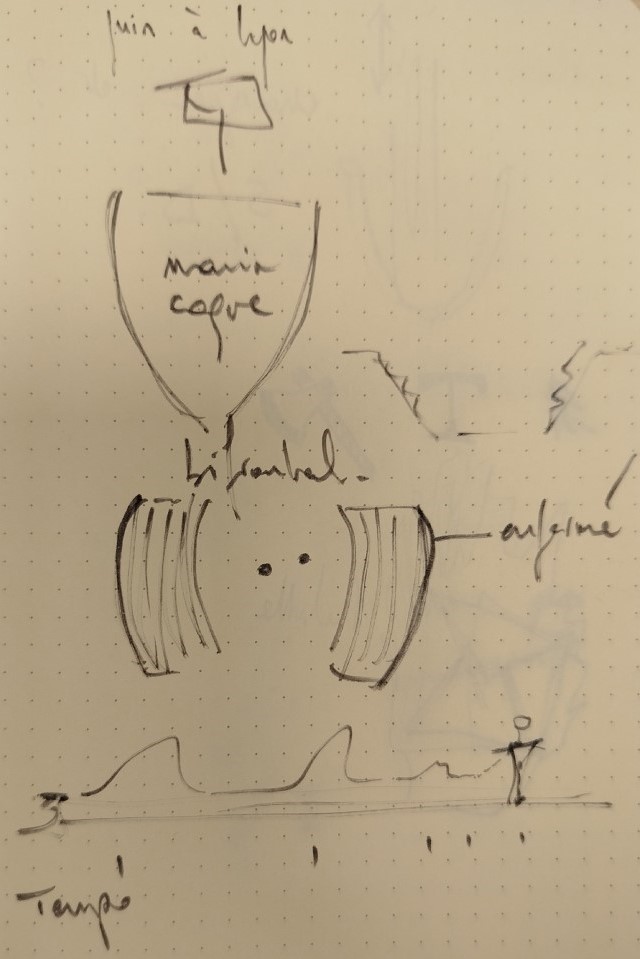 juin à Lyon
marin
coque
bifrontal.
enfermé
Tempo